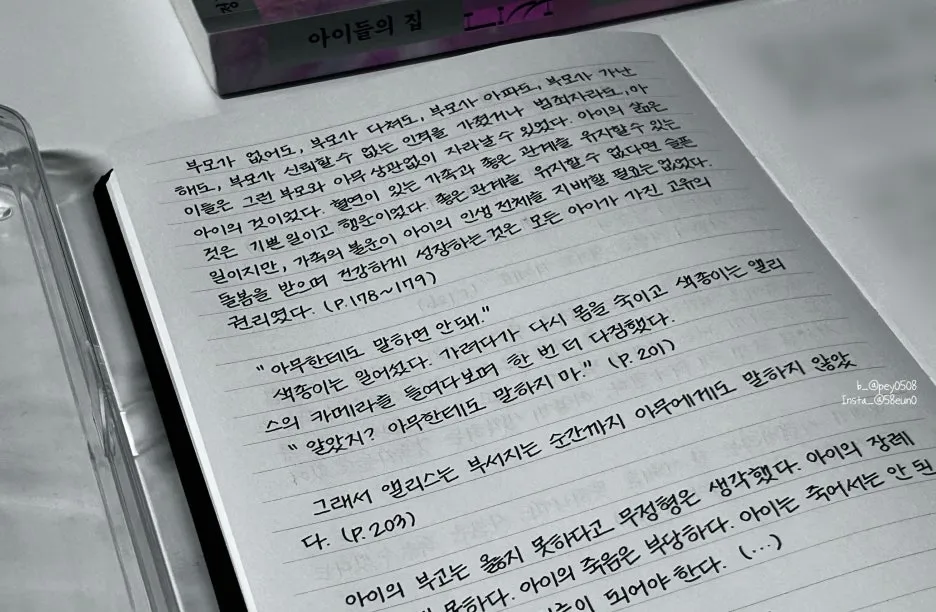 아이들의 집
부모가 없어도, 부모가 다쳐도, 부모가 아파도, 부모가 가난
해도, 부모가 신뢰할 수 없는 인격을 가졌거나 범죄자라도, 아
이들은 그런 부모와 아무 상관없이 자라날 수 있었다. 아이의 삶은
아이의 것이었다. 혈연이 있는 가족과 좋은 관계를 유지할 수 있는
것은 기쁜 일이고 행운이었다. 좋은 관계를 유지할 수 없다면 슬픈
일이지만, 가족의 불운이 아이의 인생 전체를 지배할 필요는 없었다.
돌봄을 받으며 건강하게 성장하는 것은 모든 아이가 가진 고유의
권리였다. (P.178~179)
"아무한테도 말하면 안돼."
색종이는 일어섰다. 가려다가 다시 몸을 숙이고 색종이는 앨리
스의 카메라를 들여다보며 한 번 더 다짐했다.
"알았지? 아무한테도 말하지 마." (P. 201)
b_@pey0508
Insta_@58eun0
그래서 앨리스는 부서지는 순간까지 아무에게도 말하지 않았
다. (P.203)
아이의 부고는 옳지 못하다고 무정형은 생각했다. 아이의 장례
못하다. 아이의 죽음은 부당하다. 아이는 죽어서는 안 된
이 되어야 한다. (...)